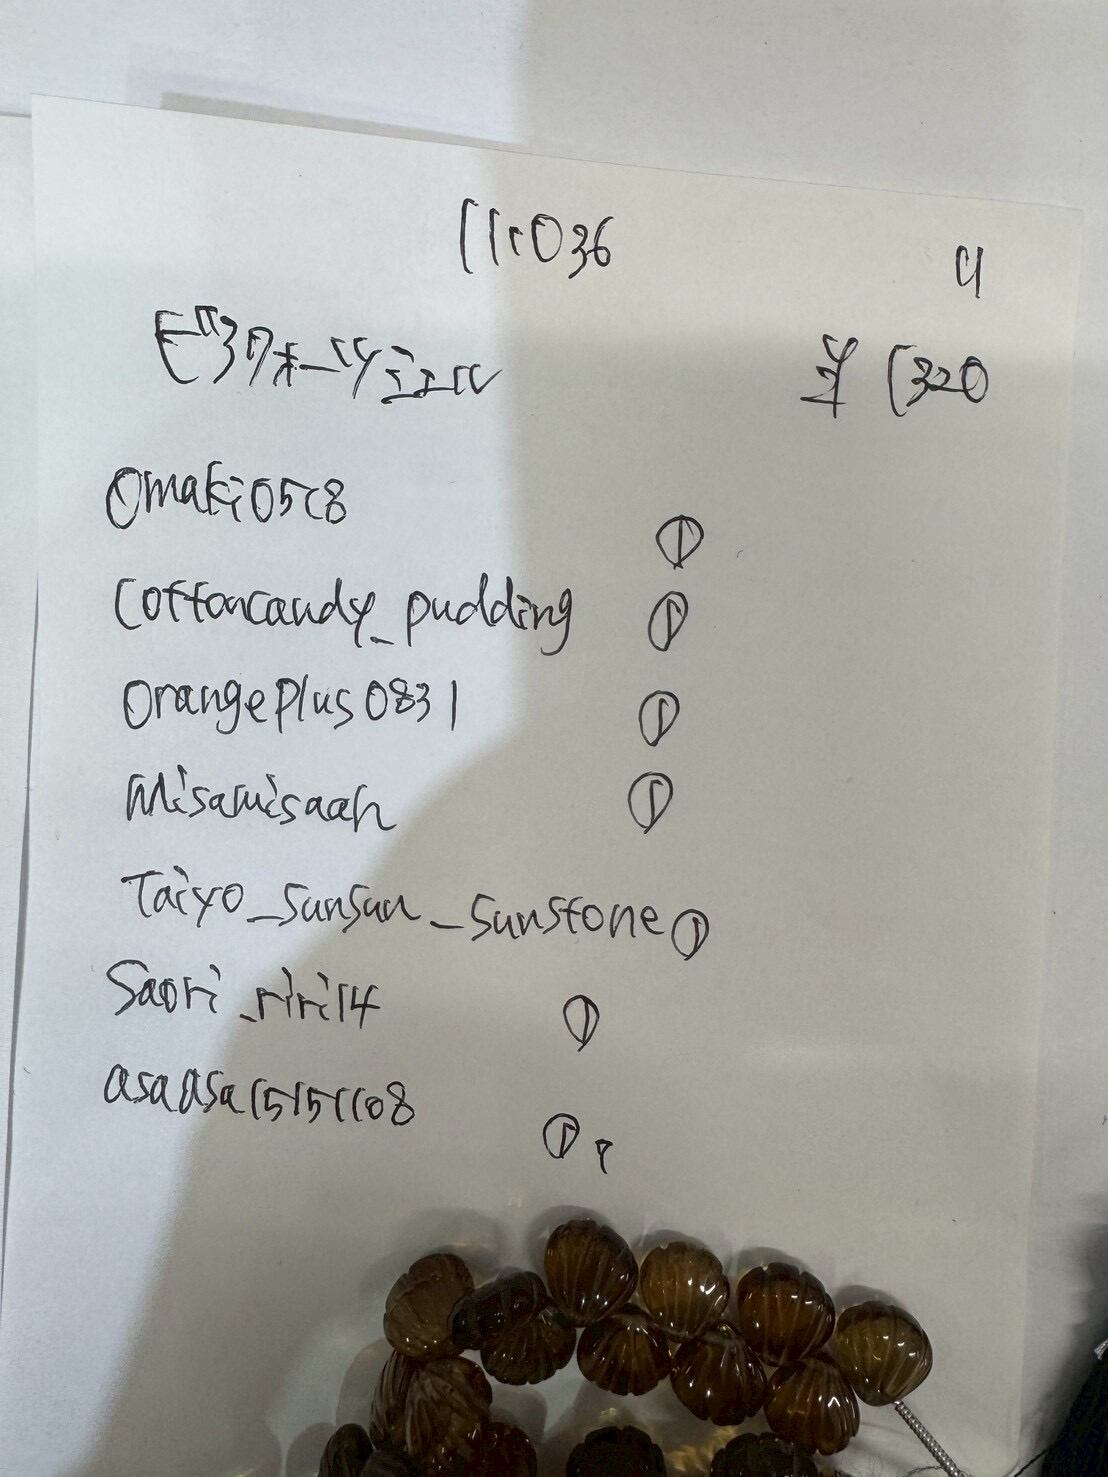 111036
4
ビヨクォーツジュエル
半 1320
Omaki0518
Cottoncandy_pudding ①
OrangePlus0831 ①
Misamisaah ①
Taiyo_sunsun_sunstone ①
Saori_riri14 ①
asaasa15151108 ①
①